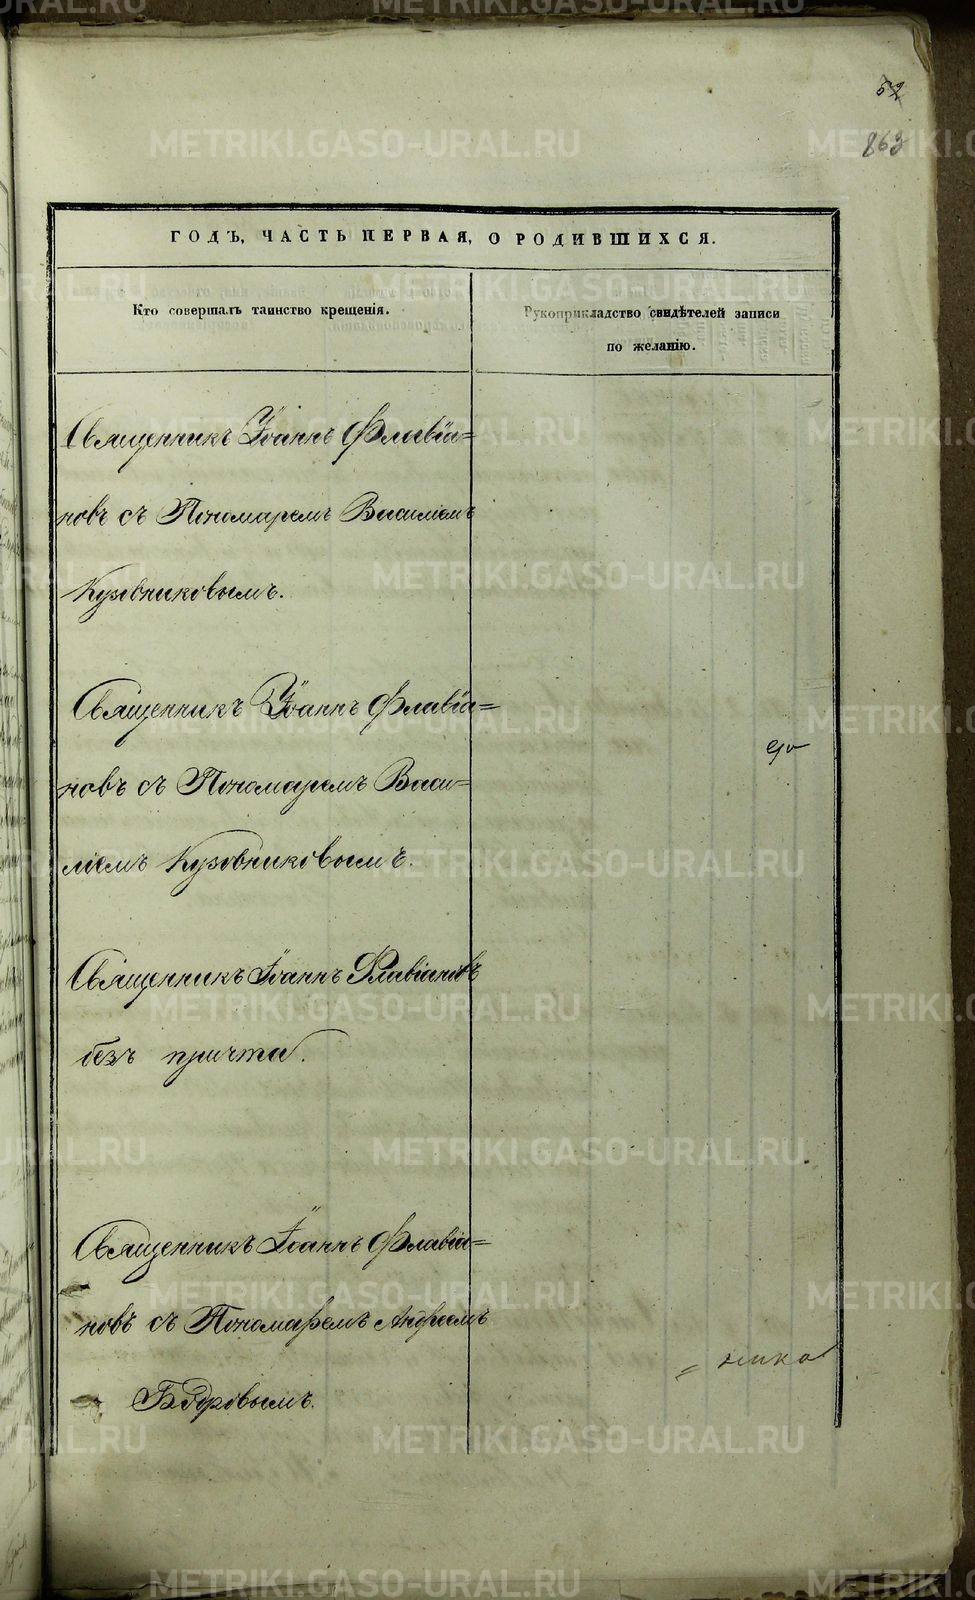 52
863
ГОДЪ, ЧАСТЬ ПЕРВАЯ, О РОДИВШИХСЯ.
Кто совершалъ таинство крещенія.
Рукоприкладство свидѣтелей записи
по желанію.
Священникъ Іоаннъ Флавіа=
новъ съ Пономаремъ Василіемъ
Кузовниковымъ.
Священникъ Іоаннъ Флавіа=
новъ съ Пономаремъ Васи=
ліемъ Кузовниковымъ.
Священникъ Іоаннъ Флавіановъ
безъ причта.
Священникъ Іоаннъ Флавіа=
новъ съ Пономаремъ Андреемъ
= ника
METRIKI.GASO-URAL.RU